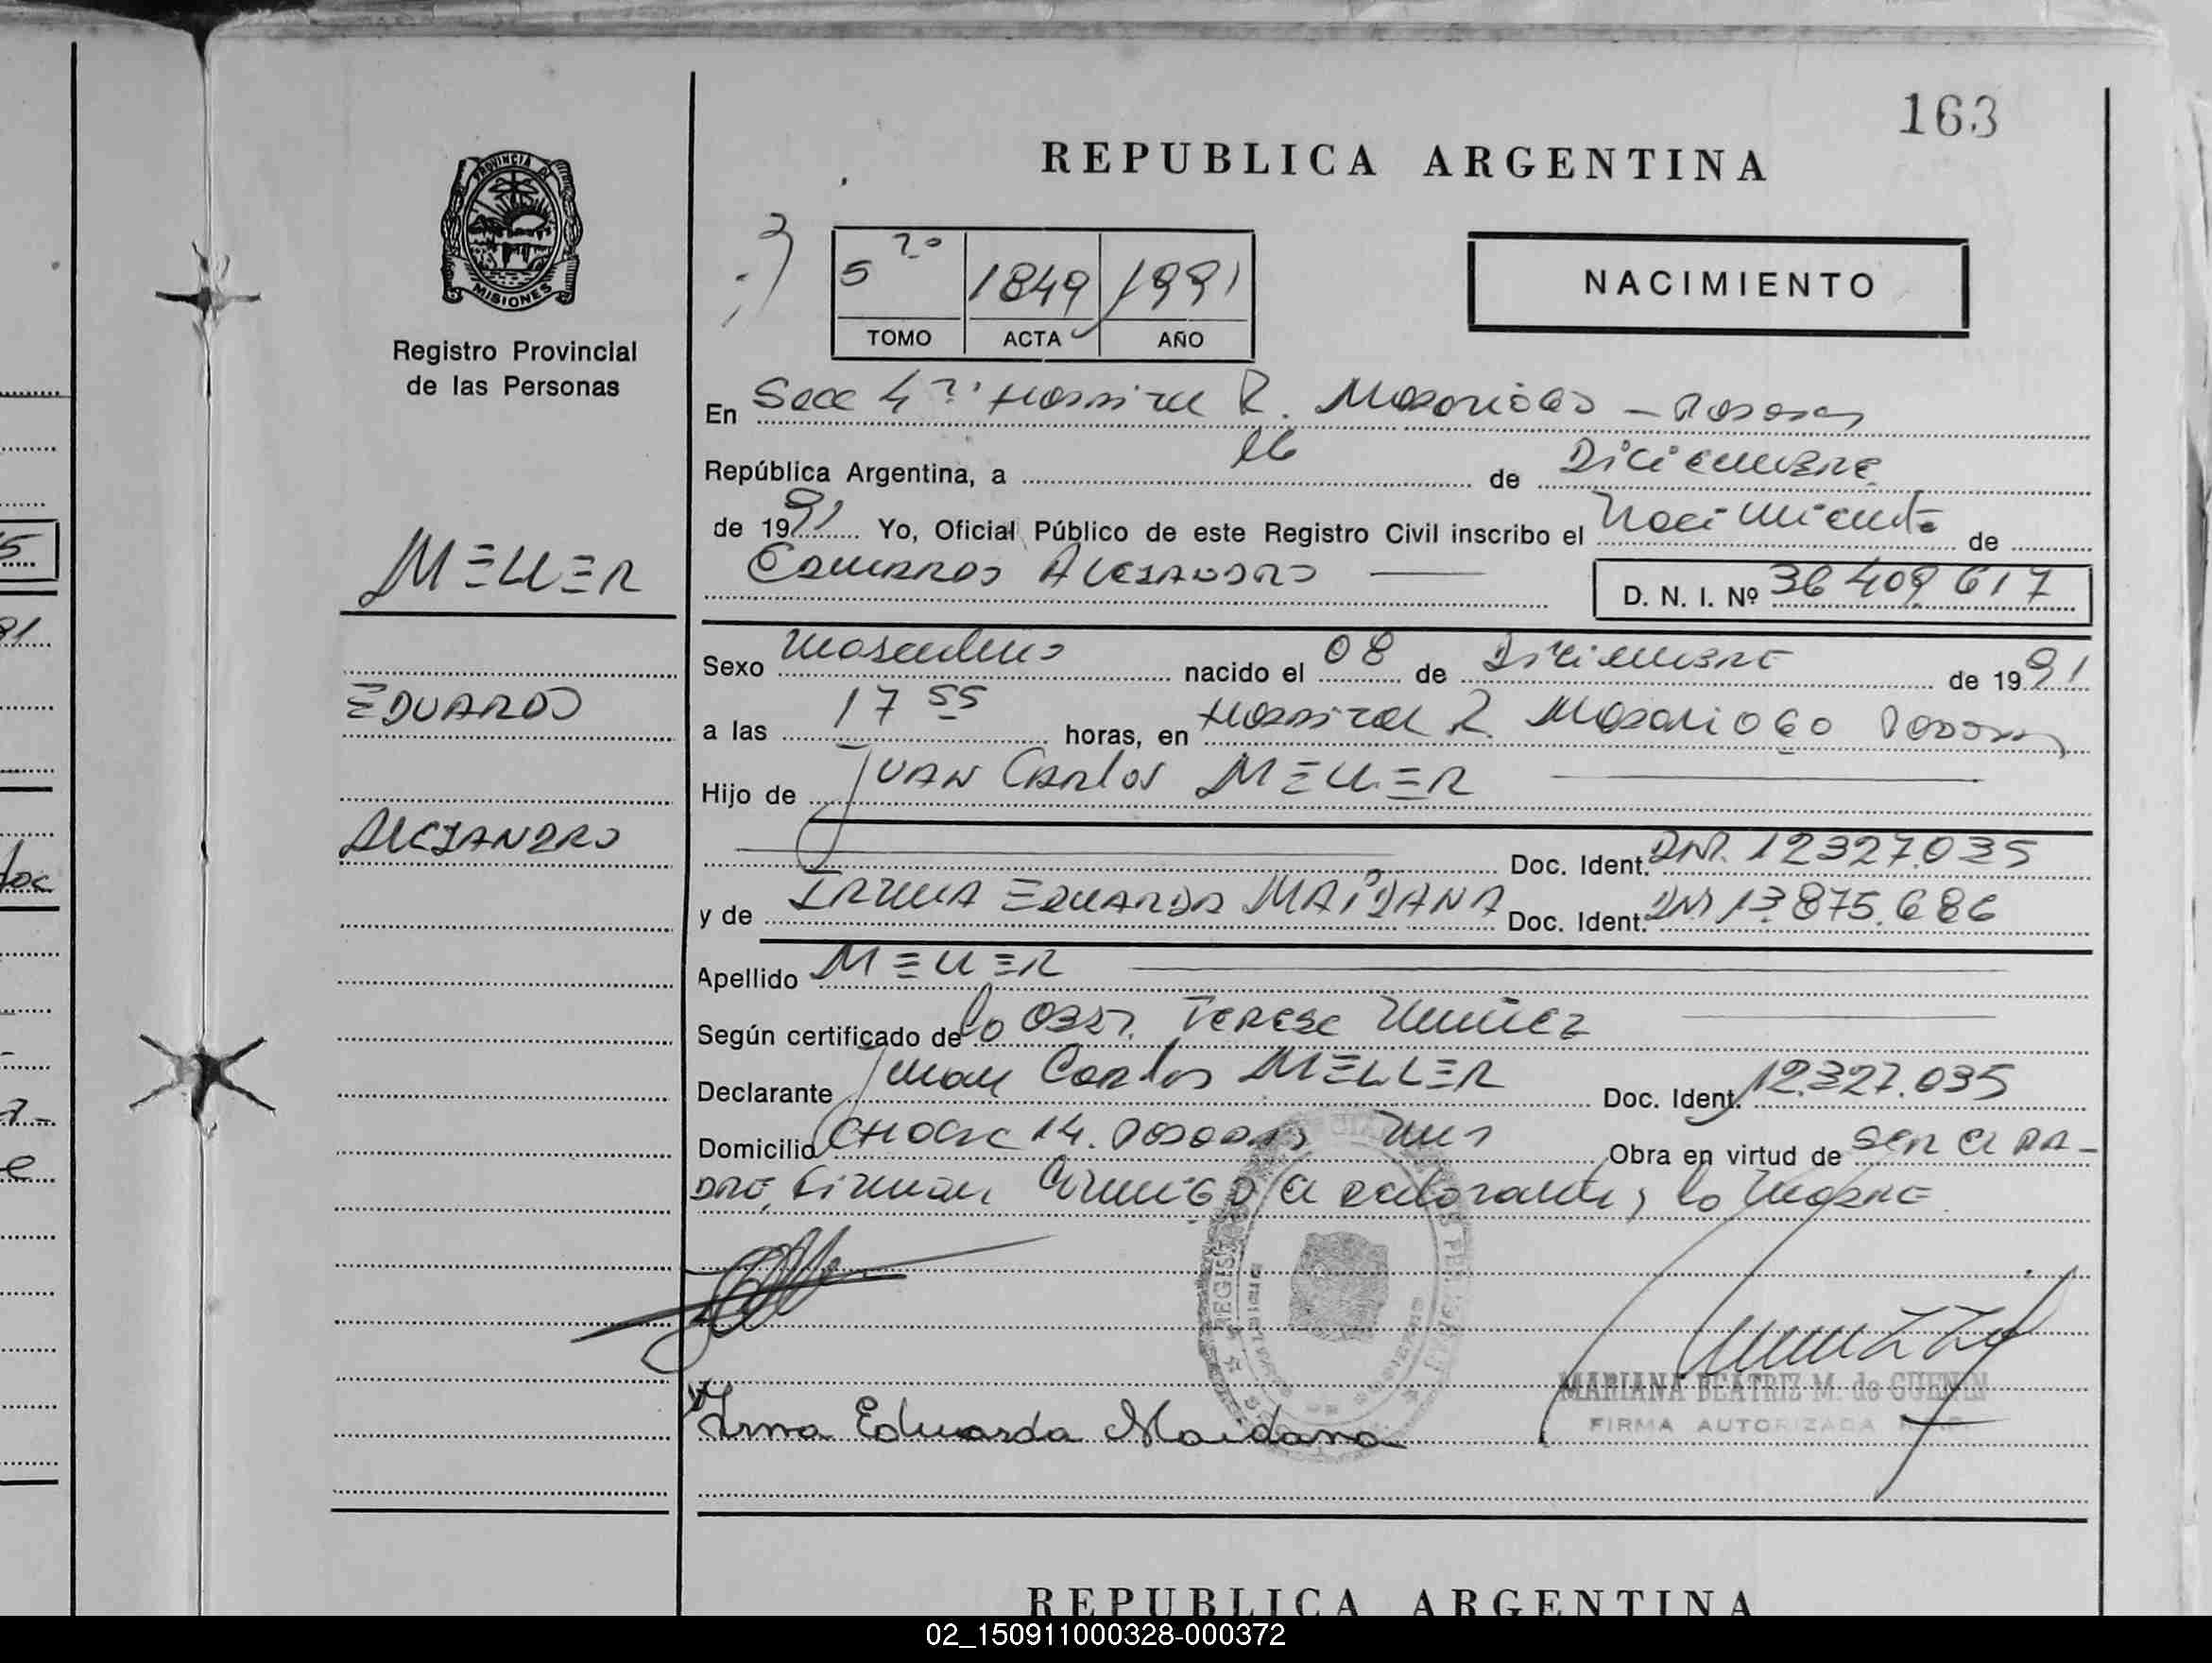 163
REPUBLICA ARGENTINA
PROVINCIA DE
MISIONES
Registro Provincial
de las Personas
5to 1849 1991
TOMO ACTA AÑO
NACIMIENTO
En Secc 4ta Hospital R. Madariaga - Posadas
República Argentina, a 16 de Diciembre
de 1991 Yo, Oficial Público de este Registro Civil inscribo el Nacimiento de
Eduardo Alejandro
D. N. I. Nº 36 409 617
MELLER
EDUARDO
ALEJANDRO
Sexo Masculino nacido el 08 de Diciembre de 1991
a las 17 55 horas, en Hospital R. Madariaga Posadas
Hijo de Juan Carlos MELLER
Doc. Ident. DNI. 12327.035
y de IRMA EDUARDA MAIDANA Doc. Ident. DNI 13.875.686
Apellido MELLER
Según certificado de la Obst. Teresa Nuñez
Declarante Juan Carlos MELLER Doc. Ident. 12.327.035
Domicilio Chacra 14. Posadas Mnes Obra en virtud de ser el pa-
dre, firman conmigo el declarante y la madre
Irma Eduarda Maidana
MARIANA BEATRIZ M. de GUENIN
FIRMA AUTORIZADA R.P.P.
REPUBLICA ARGENTINA
02_150911000328-000372